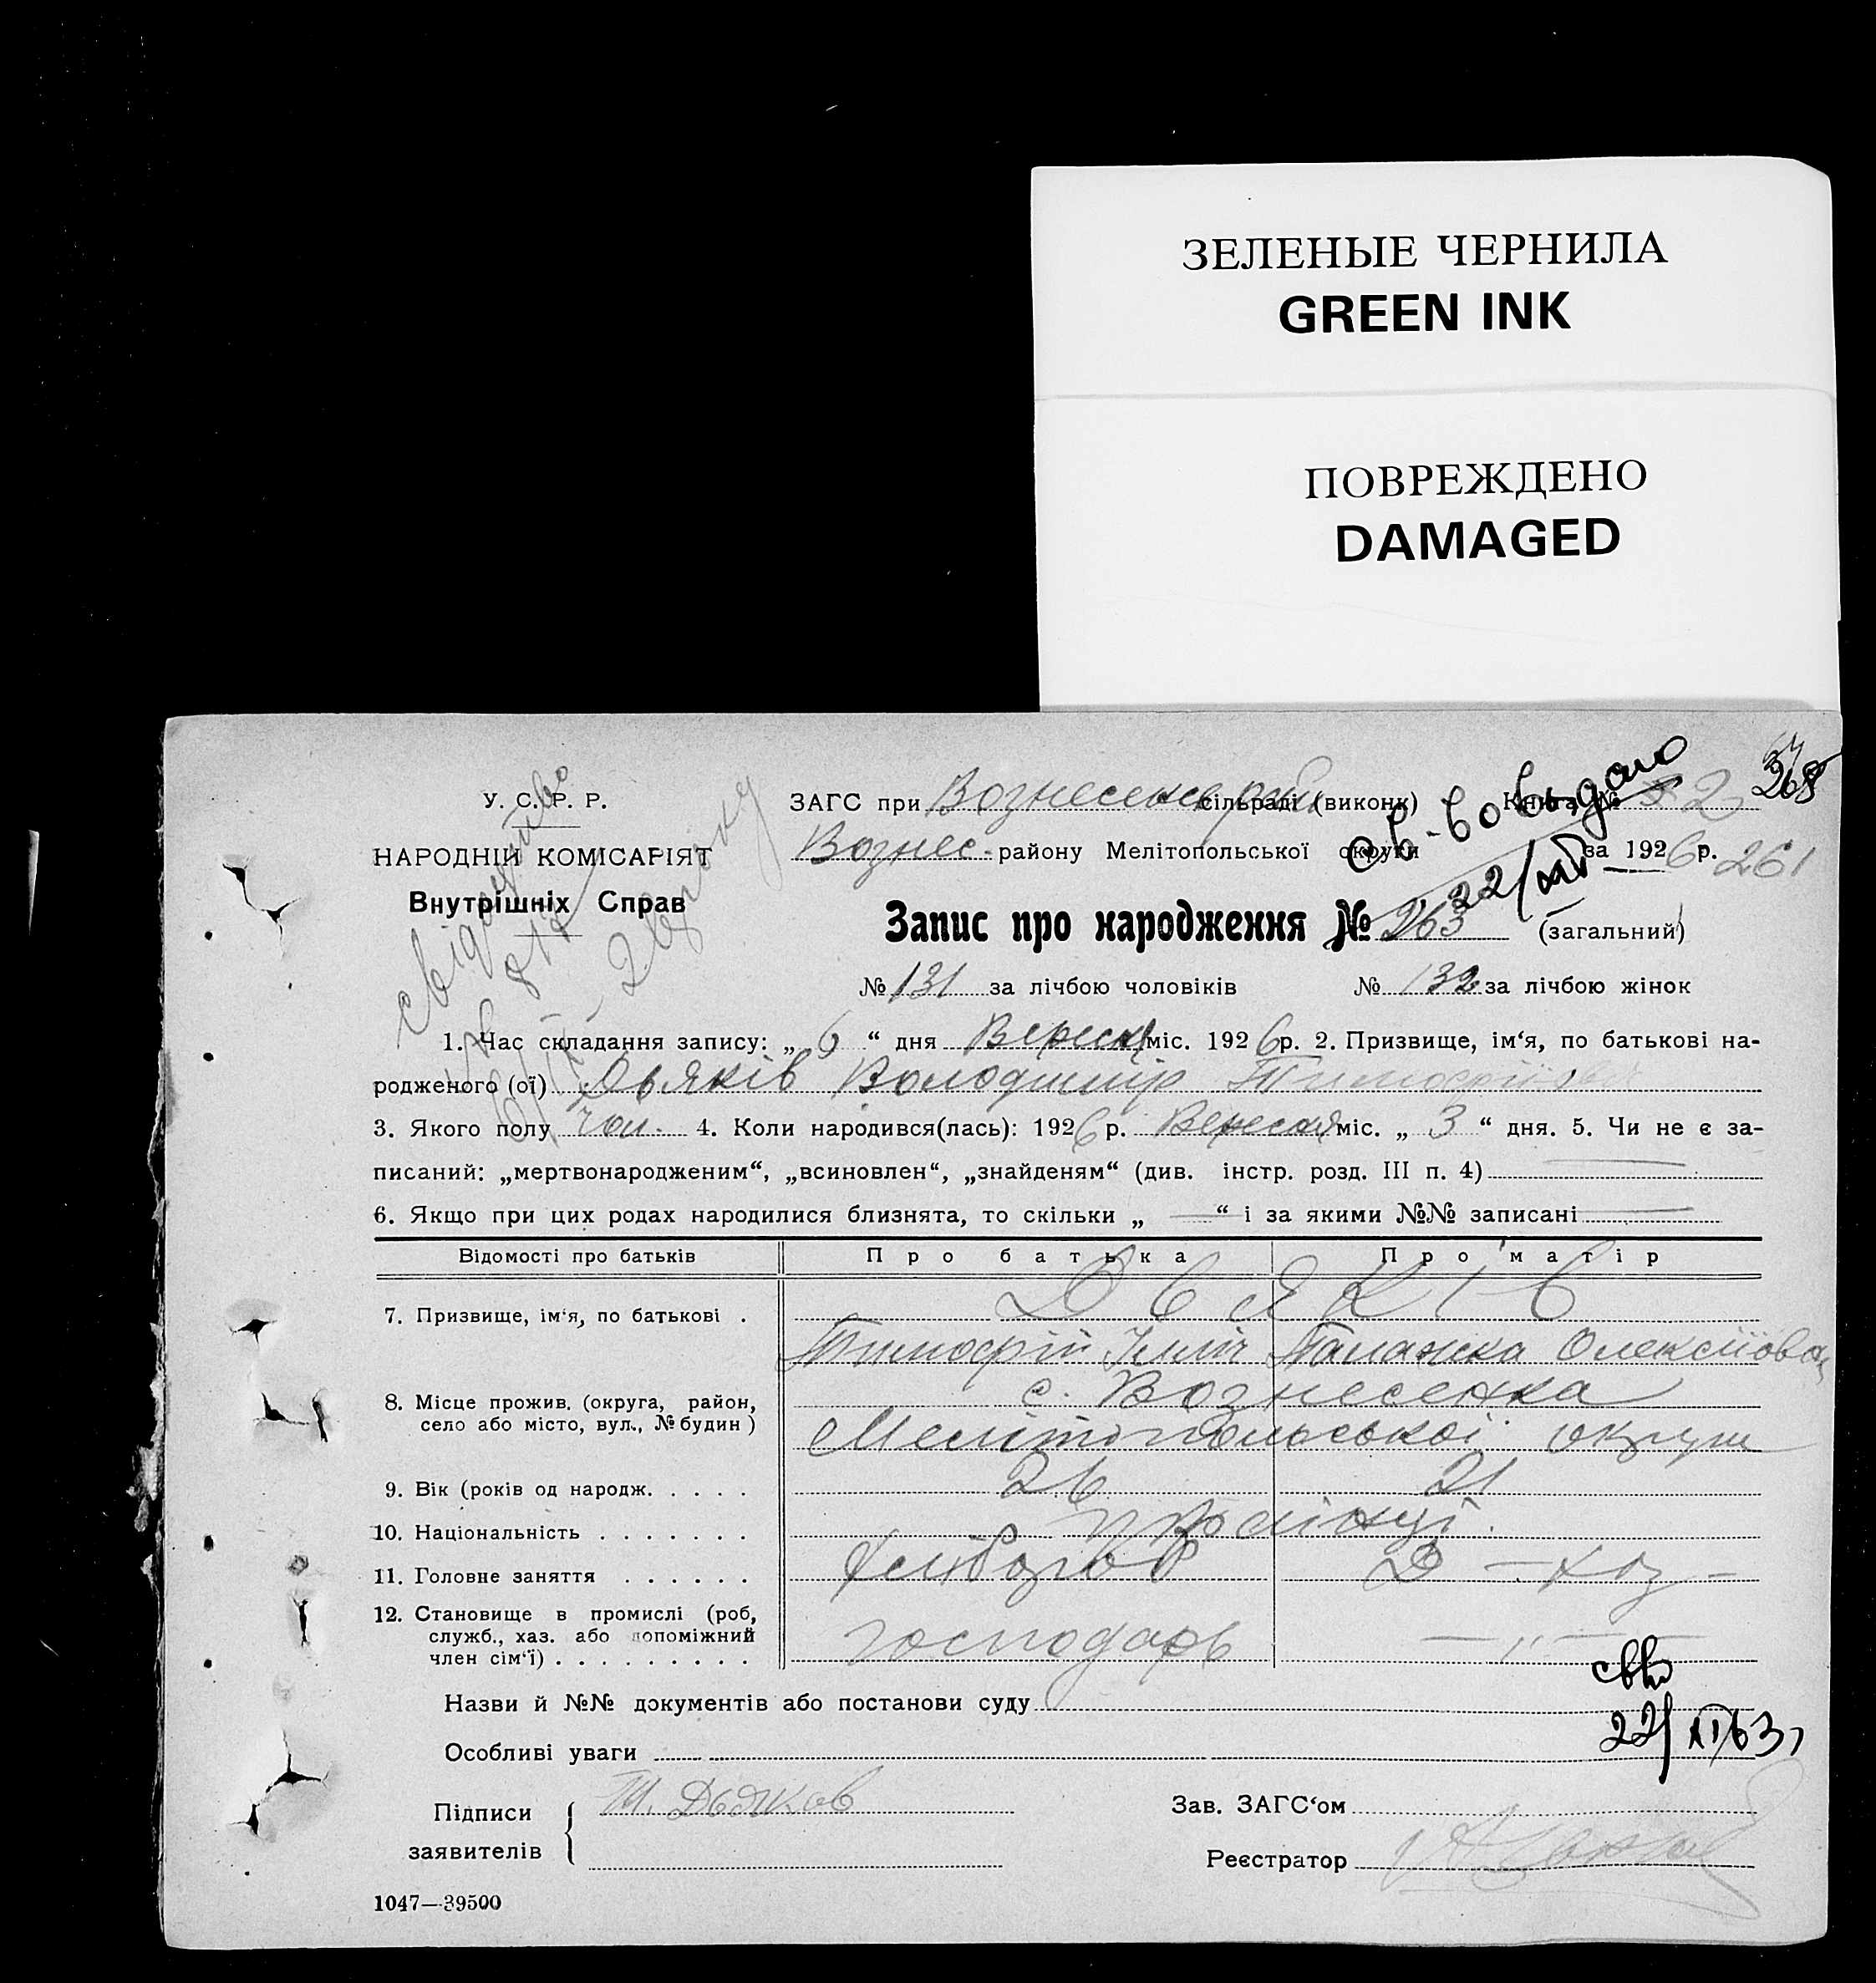 ЗЕЛЕНЫЕ ЧЕРНИЛА
GREEN INK
ПОВРЕЖДЕНО
DAMAGED
У. С. Р. Р.
НАРОДНІЙ КОМІСАРІЯТ
Внутрішніх Справ
свідоцтво
св-во выдано
22/XII
ЗАГС при Вознесенській сільраді (виконк) Книга № 2
268
Вознес. району Мелітопольської округи за 1926 р. 261
Запис про народження № 263 (загальний)
№ 131 за лічбою чоловіків № 132 за лічбою жінок
1. Час складання запису: „ 6 “ дня Вересня міс. 1926 р. 2. Призвище, ім‘я, по батькові на-
родженого (ої) Дьяків Володимір Тимофійов
3. Якого полу чол. 4. Коли народився(лась): 1926 р. Вересня міс. „ 3 “ дня. 5. Чи не є за-
писаний: „мертвонародженим“, „всиновлен“, „знайденям“ (див. інстр. розд. III п. 4) —
6. Якщо при цих родах народилися близнята, то скільки „ — “ і за якими №№ записані —
Відомості про батьків Про батька Про матір
7. Призвище, ім‘я, по батькові . Дьяків
Тимофій Ілліч Палажка Олексіїовна
8. Місце прожив. (округа, район, село або місто, вул., № будин ) с. Вознесенка
Мелітопольської округи
9. Вік (років од народж. . . . . 26 21
10. Національність . . . . . . .
11. Головне заняття . . . . . . Хлібороб Д - хоз -
12. Становище в промислі (роб,
служб., хаз. або допоміжний
член сім‘ї) . . . . . . . . . господарь — „ —
Назви й №№ документів або постанови суду
Особливі уваги
22/XI 63 г
Підписи
заявителів
Т. Дьяков
Зав. ЗАГС‘ом
Реєстратор
1047—39500